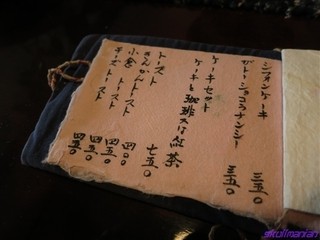 シフォンケーキ 三五〇
ガトーショコラナンシー 三五〇
ケーキセット
ケーキと珈琲又は紅茶 七五〇
トースト 四〇〇
あんかけトースト 四五〇
小倉トースト 四五〇
チーズトースト 四五〇
skullmanian